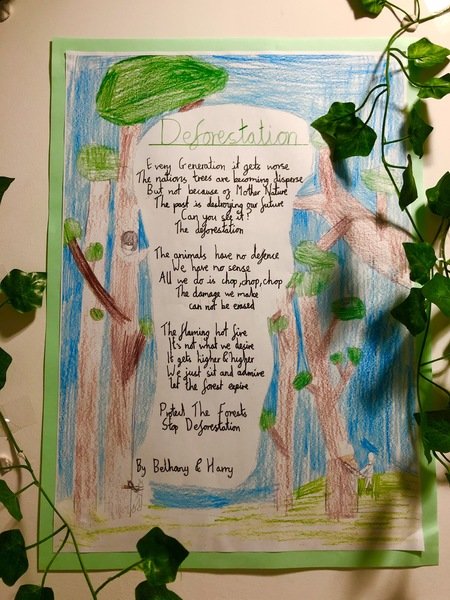 Deforestation
Every Generation it gets worse
The nations trees are becoming disperse
But not because of Mother Nature
The past is destroying our future
Can you see it?
The deforestation
The animals have no defence
We have no sense
All we do is chop,chop,chop
The damage we make
can not be erased
The flaming hot fire
It's not what we desire
It gets higher & higher
We just sit and admire
let the forest expire
Protect The Forests
Stop Deforestation
By Bethany & Harry